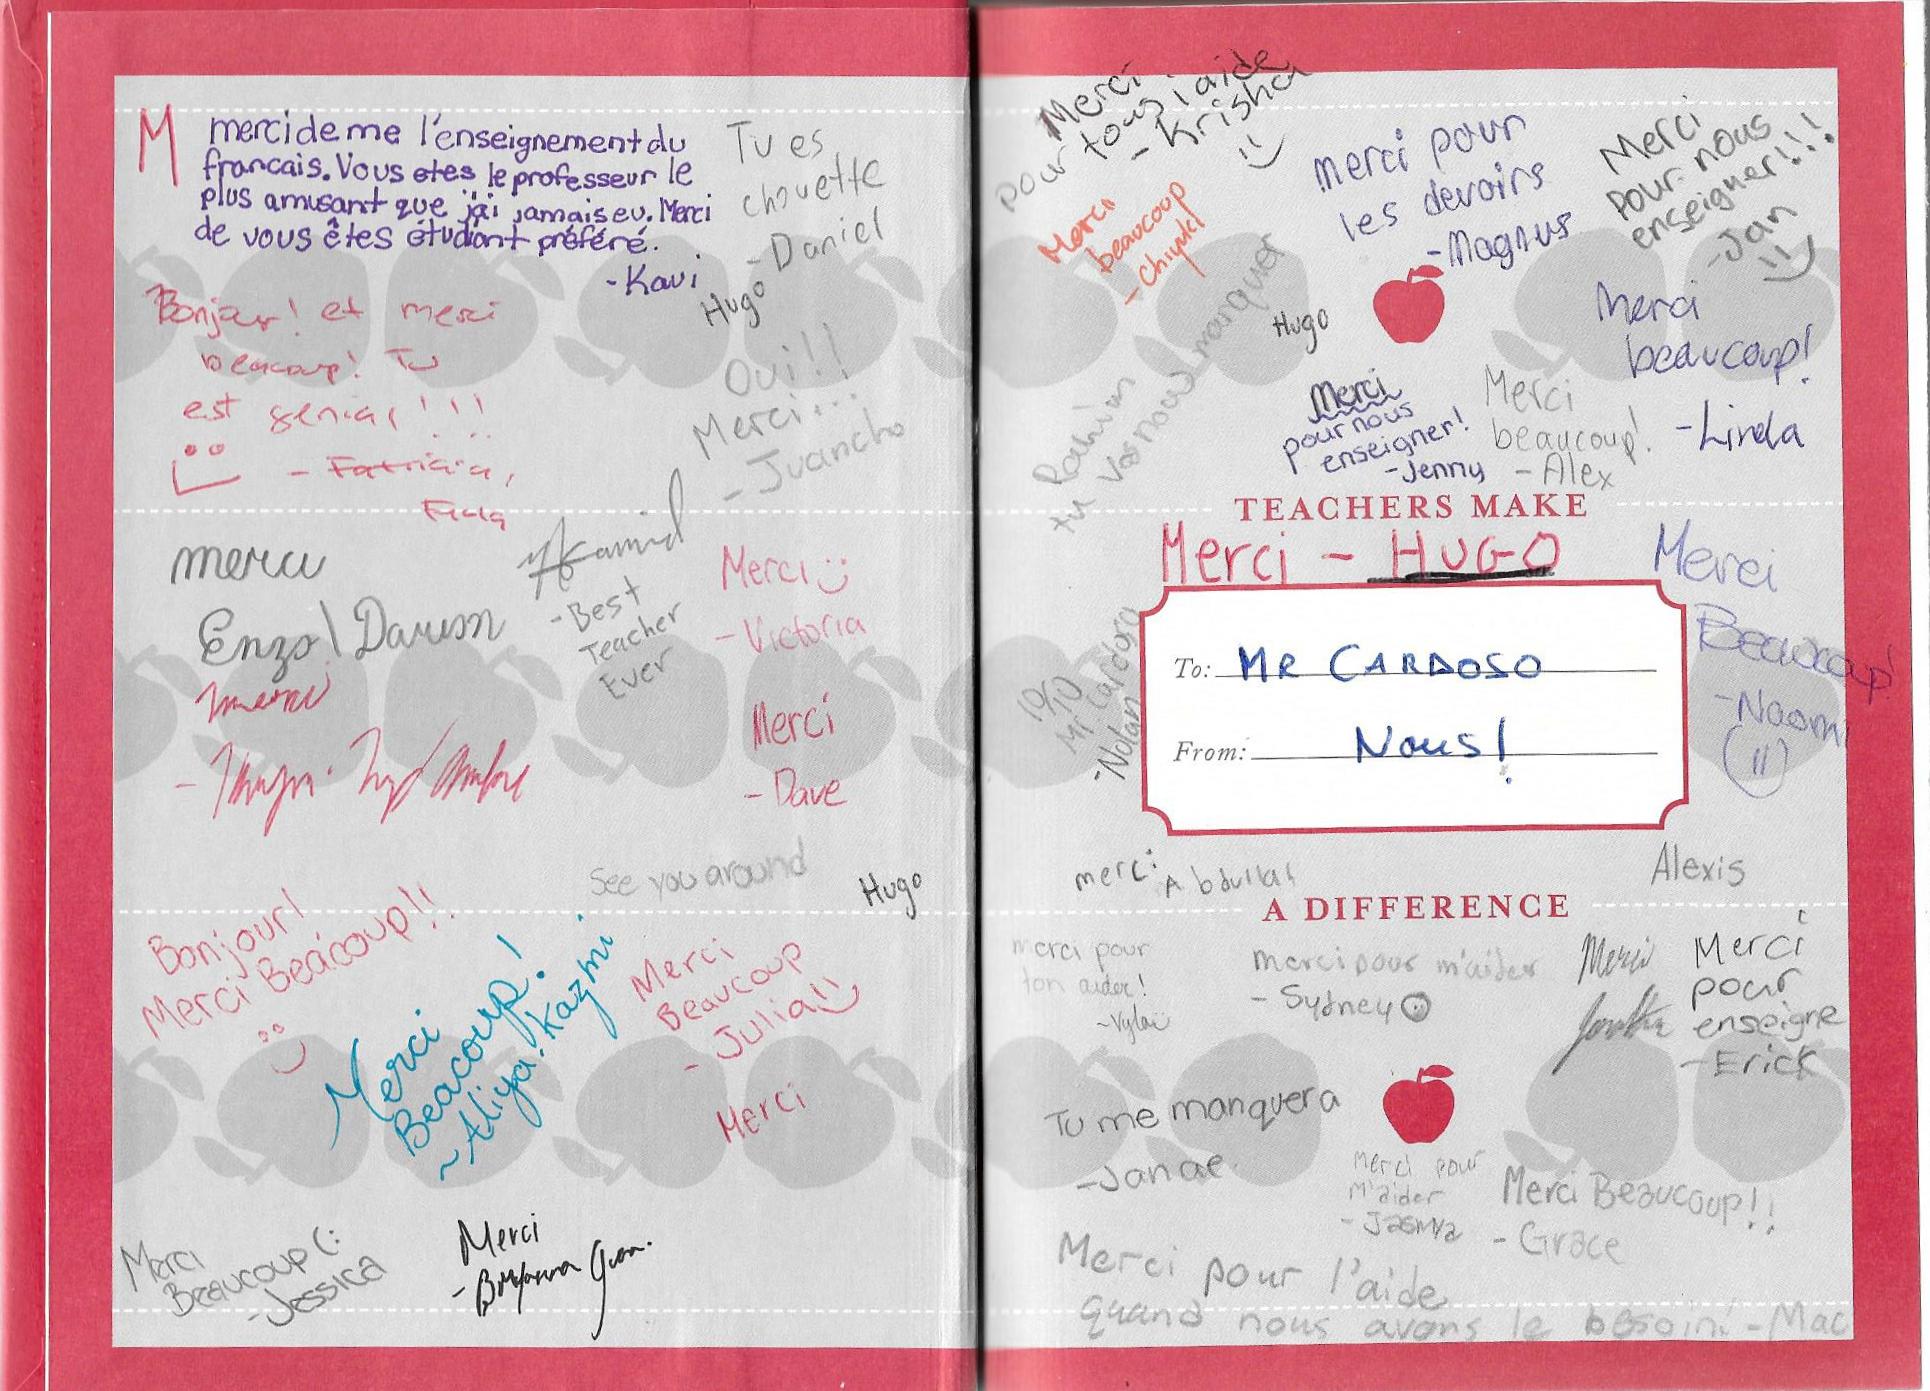 M merci de me l'enseignement du
francais. Vous etes le professeur le
plus amusant que j'ai jamais eu. Merci
de vous êtes étudiant préféré.
-Kavi
Tu es
chouette
-Daniel
Hugo
Bonjour! et merci
beacoup! Tu
est genial!!!
Oui!!
Merci...
-Juancho
merci
Enzo
-Best
Teacher
Ever
Merci
-Victoria
merci
Merci
-Dave
See you around
Hugo
Bonjour!
Merci Beacoup!!
Merci
Beacoup!
~Aliya. Kazmi
Merci
Beaucoup
-Julia
Merci
Merci
Beaucoup (:
-Jessica
Merci
Merci
pour tous l'aide
-Krisha
Merci
beaucoup
Merci pour
les devoirs
-Magnus
Merci
pour nous
enseigner!!!
-Jan
Hugo
tu vas nous manquer
Merci
beaucoup!
-Linda
Merci
pour nous
enseigner!
-Jenny
Merci
beaucoup!
-Alex
TEACHERS MAKE
Merci - HUGO
Merci
Beaucoup!
-Naomi
10/10
-Nolan
To: MR CARDOSO
From: Nous!
merci Abdullah
Alexis
A DIFFERENCE
merci pour
ton aider!
merci pour m'aider
-Sydney
Merci
Merci
pour
enseigne
-Erick
Tu me manquera
-Janae
Merci pour
m'aider
Merci Beaucoup!!
-Grace
Merci pour l'aide
quand nous avons le besoin! -Mac